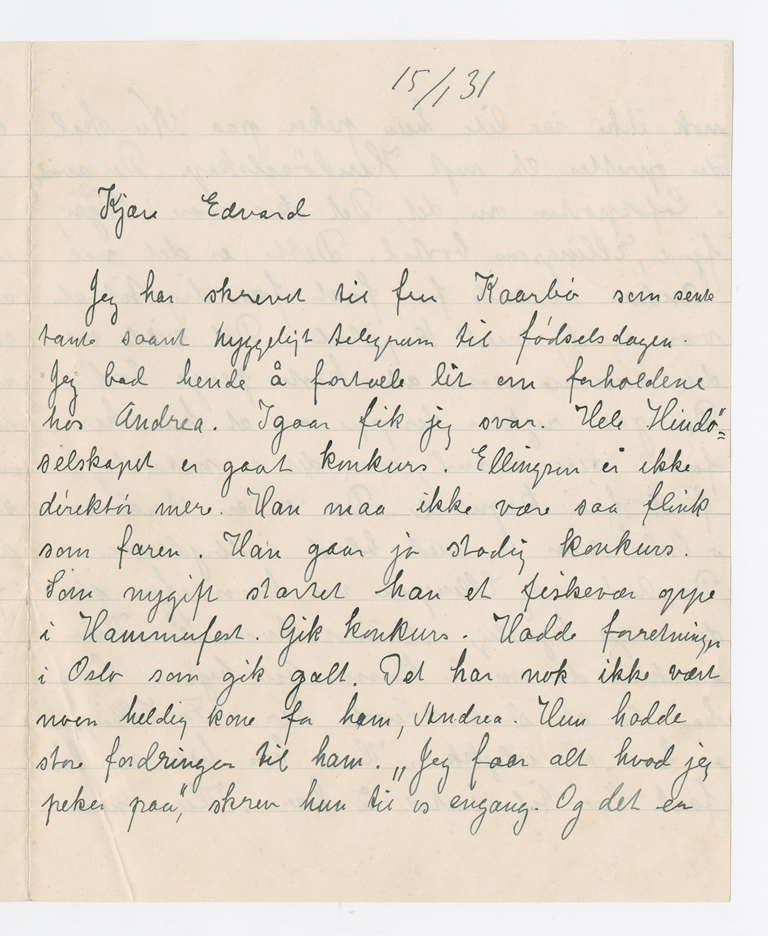 15/1 31
Kjære Edvard
Jeg har skrevet til fru Kaarbø som sente
tante saant hyggeligt telegram til fødselsdagen.
Jeg bad hende å fortæle lit om forholdene
hos Andrea. Igaar fik jeg svar. Hele Hindø=
selskapet er gaat konkurs. Ellingsen er ikke
direktør mere. Han maa ikke være saa flink
som faren. Han gaar jo stadig konkurs.
Som nygift startet han et fiskevær oppe
i Hammerfest. Gik konkurs. Hadde forretninger
i Oslo som gik galt. Det har nok ikke vært
noen heldig kone for ham, Andrea. Hun hadde
store fordringer til ham. „Jeg faar alt hvad jeg
peker paa", skrev hun til os engang. Og det er